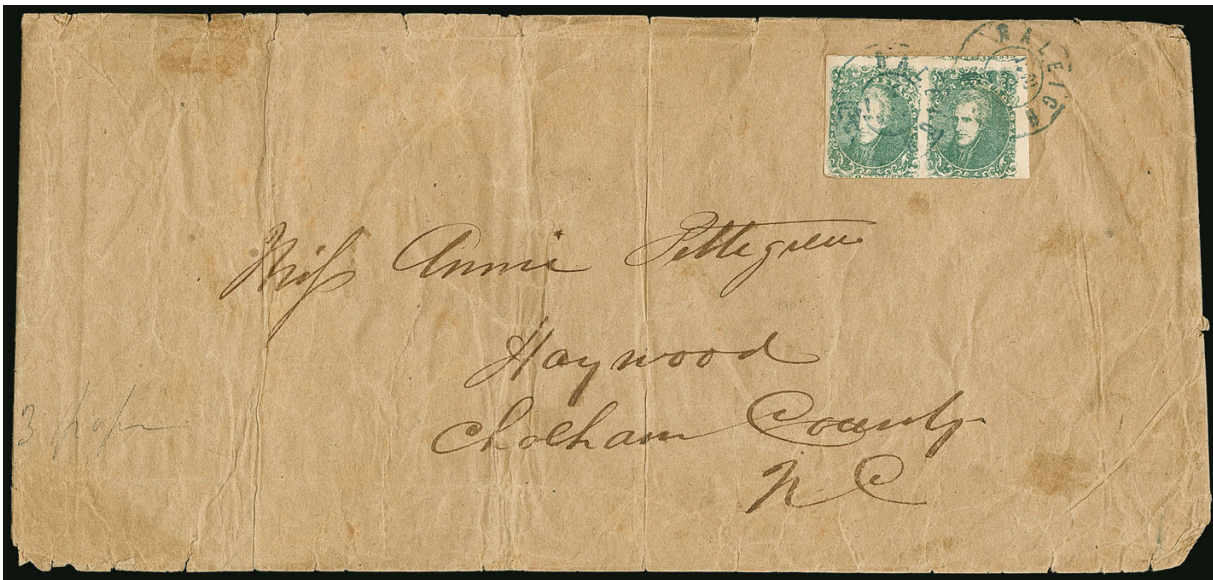 RALEIGH
Miss Annie Pettegrew
Haywood
Chatham County
N C
3